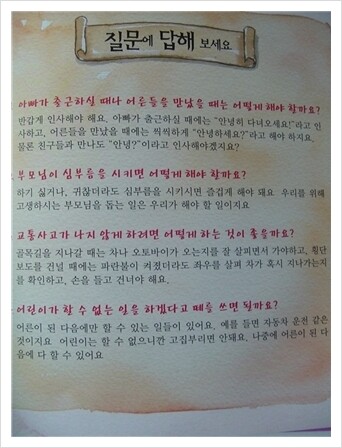 질문에 답해 보세요
아빠가 출근하실 때나 어른들을 만났을 때는 어떻게 해야 할까요?
반갑게 인사해야 해요. 아빠가 출근하실 때에는 "안녕히 다녀오세요!"라고 인
사하고, 어른들을 만났을 때에는 씩씩하게 "안녕하세요?"라고 해야 하지요.
물론 친구들과 만나도 "안녕?"이라고 인사해야겠지요?
부모님이 심부름을 시키면 어떻게 해야 할까요?
하기 싫거나, 귀찮더라도 심부름을 시키시면 즐겁게 해야 돼요 우리를 위해
고생하시는 부모님을 돕는 일은 우리가 해야 할 일이지요
교통사고가 나지 않게 하려면 어떻게 하는 것이 좋을까요?
골목길을 지나갈 때는 차나 오토바이가 오는지를 잘 살피면서 가야하고, 횡단
보도를 건널 때에는 파란불이 켜졌더라도 좌우를 살펴 차가 혹시 지나가는지
를 확인하고, 손을 들고 건너야 해요.
어린이가 할 수 없는 일을 하겠다고 떼를 쓰면 될까요?
어른이 된 다음에만 할 수 있는 일들이 있어요. 예를 들면 자동차 운전 같은
것이지요 어린이는 할 수 없으니깐 고집부리면 안돼요. 나중에 어른이 된 다
음에 다 할 수 있어요